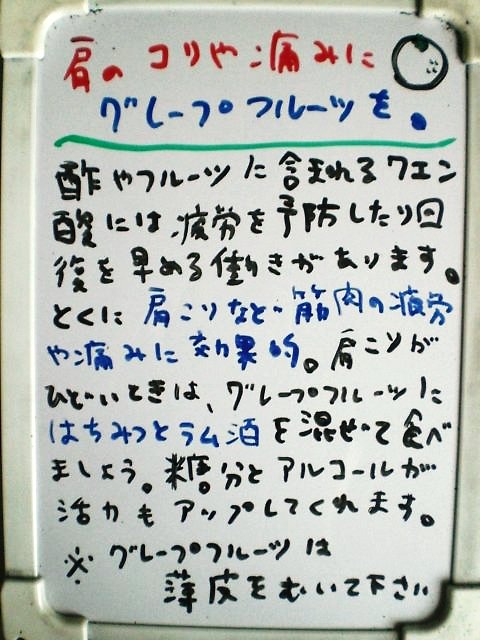 肩のコリや痛みに
グレープフルーツを。
酢やフルーツに含まれるクエン
酸には疲労を予防したり回
復を早める働きがあります。
とくに肩こりなど筋肉の疲労
や痛みに効果的。肩こりが
ひどいときは、グレープフルーツに
はちみつとラム酒を混ぜて食べ
ましょう。糖分とアルコールが
活力もアップしてくれます。
※グレープフルーツは
薄皮をむいて下さい